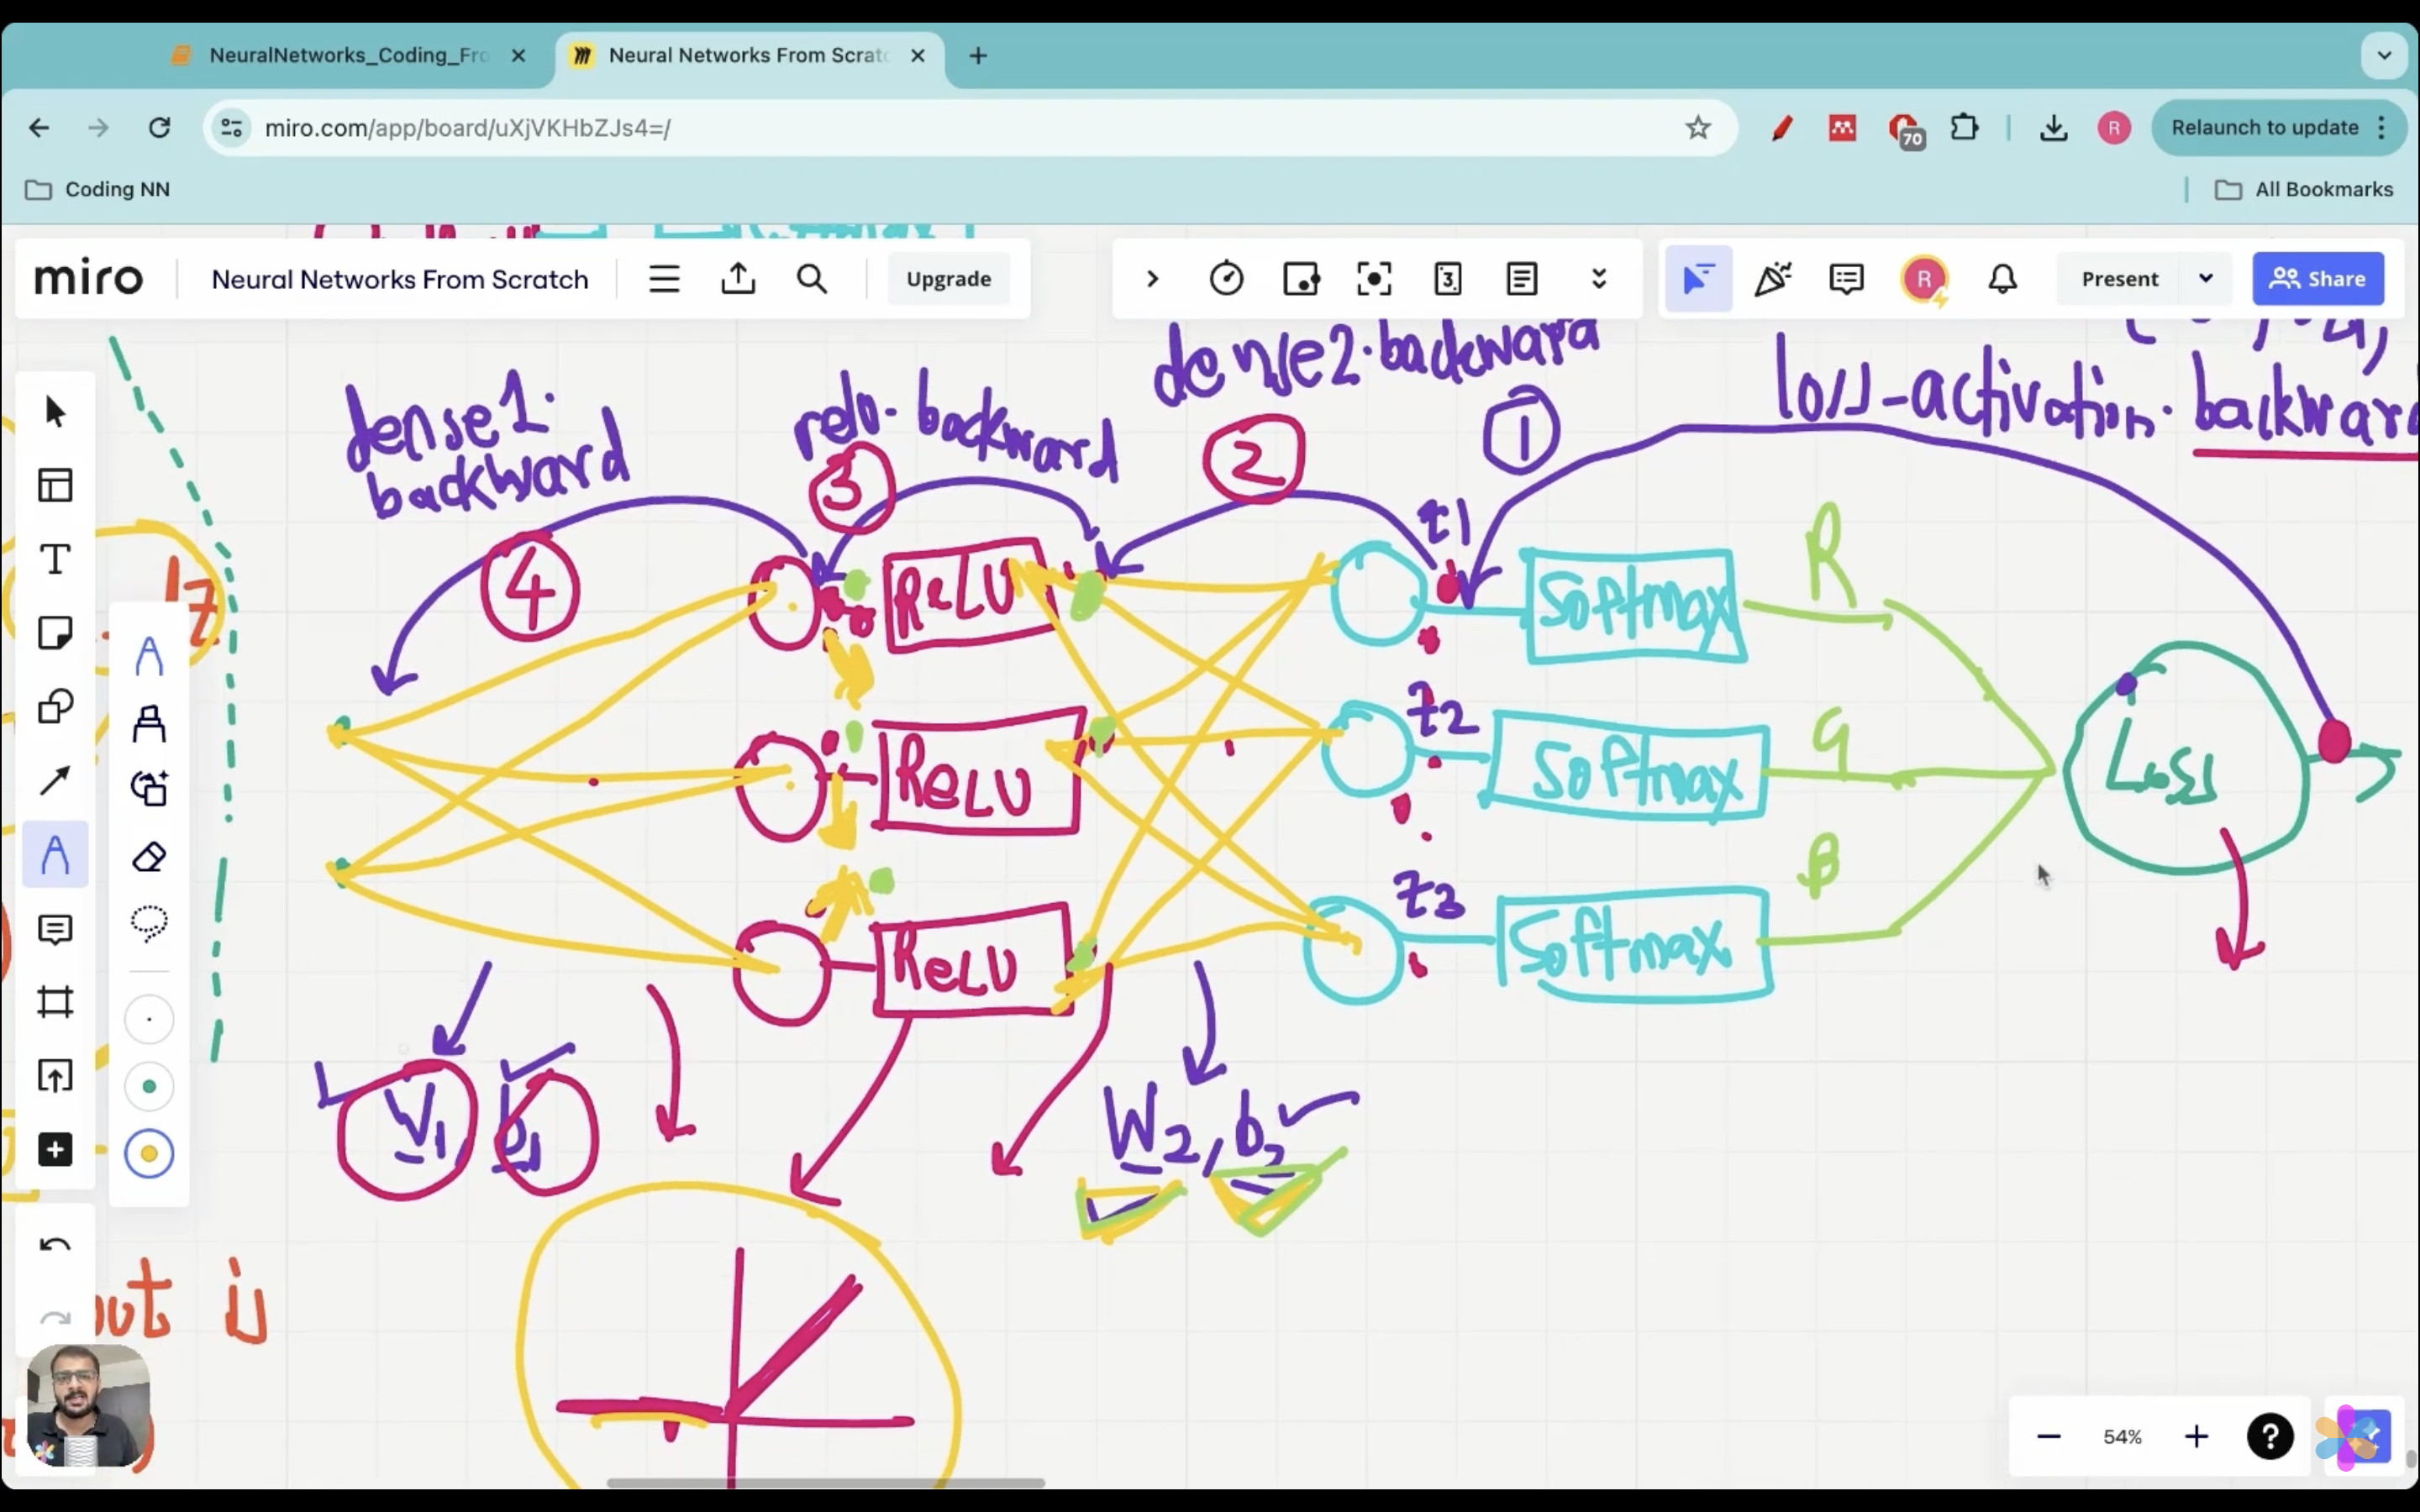 NeuralNetworks_Coding_Fro
Neural Networks From Scratc
miro.com/app/board/uXjVKHbZJs4=/
70
R
Relaunch to update
Coding NN
All Bookmarks
miro
Neural Networks From Scratch
Upgrade
3
R
Present
Share
dense2.backward
loss-activation.backward
dense1.
backward
relu.backward
1
2
3
4
z1
z2
z3
ReLU
ReLU
ReLU
Softmax
Softmax
Softmax
R
G
B
Loss
W1, b1
W2, b2
out is
54%
?